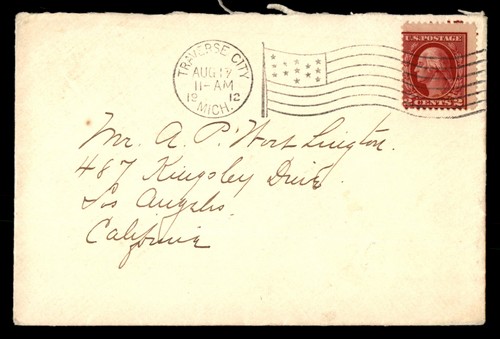 TRAVERSE CITY
AUG 17
11-AM
1912
MICH.
U.S. POSTAGE
CENTS 2
Mr. A. P. Worthington.
487 Kingsley Drive.
Los Angeles.
California